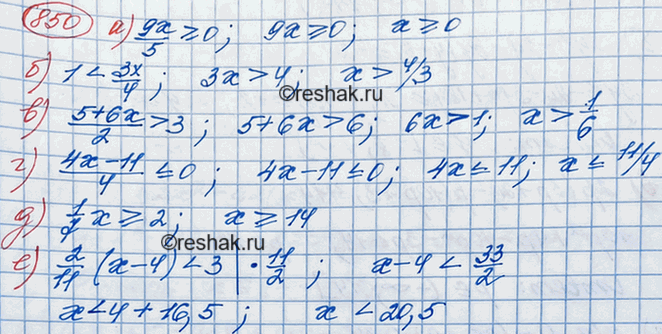 850 а) 9x/5 ≥ 0; 9x ≥ 0; x ≥ 0
б) 1 < 3x/4; 3x > 4; x > 4/3
©reshak.ru
в) (5+6x)/2 > 3; 5+6x > 6; 6x > 1; x > 1/6
г) (4x-11)/4 ≤ 0; 4x-11 ≤ 0; 4x ≤ 11; x ≤ 11/4
д) 1/7 x ≥ 2; x ≥ 14
е) 2/11 (x-4) < 3 | · 11/2; x-4 < 33/2
©reshak.ru
x < 4 + 16,5; x < 20,5